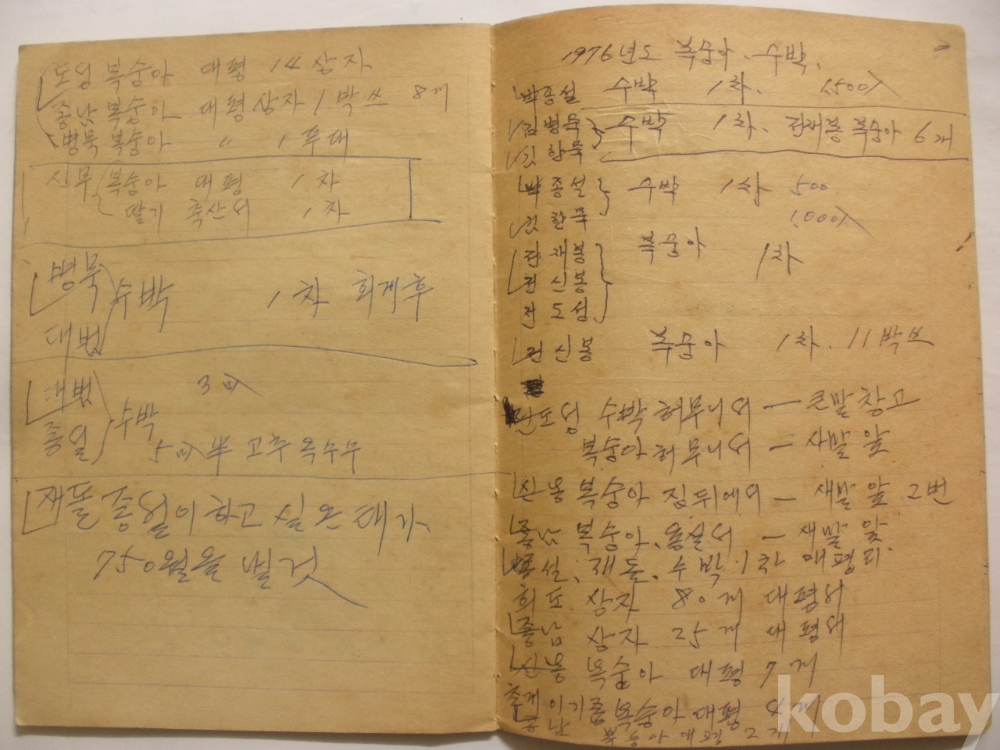 도성 복숭아 대평 14 상자
종남 복숭아 대평 상자 1 박쓰 8개
병묵 복숭아 〃 1 푸대
신무 복숭아 대평 1차
딸기 축산서 1차
병묵 수박 1차 회계후
대법
대법 3마
종일 수박
5마半 고추 옥수수
재돌 종일이 하고 실은 대가
750원을 벨 것
1976년도 복숭아, 수박,
박종설 수박 1차. 1,500
김병묵 수박 1차. 전재봉 복숭아 6개
김항묵
박종설 수박 1차 500
김항묵 1,000
전재봉 복숭아 1차
전신봉
전도성
전신봉 복숭아 1차. 11박쓰
전도성 수박 허무니서 — 큰말창고
복숭아 허무니서 — 새말 앞
신용 복숭아 집뒤에서 — 새말 앞 2번
종남 복숭아, 용설서 — 새말 앞
종설, 재돌, 수박 1차 대평리
희도 상자 80개 대평서
종남 상자 25개 대평서
신용 복숭아 대평 7개
이기종 복숭아 대평 4개
종남 복숭아 대평 2개
kobay